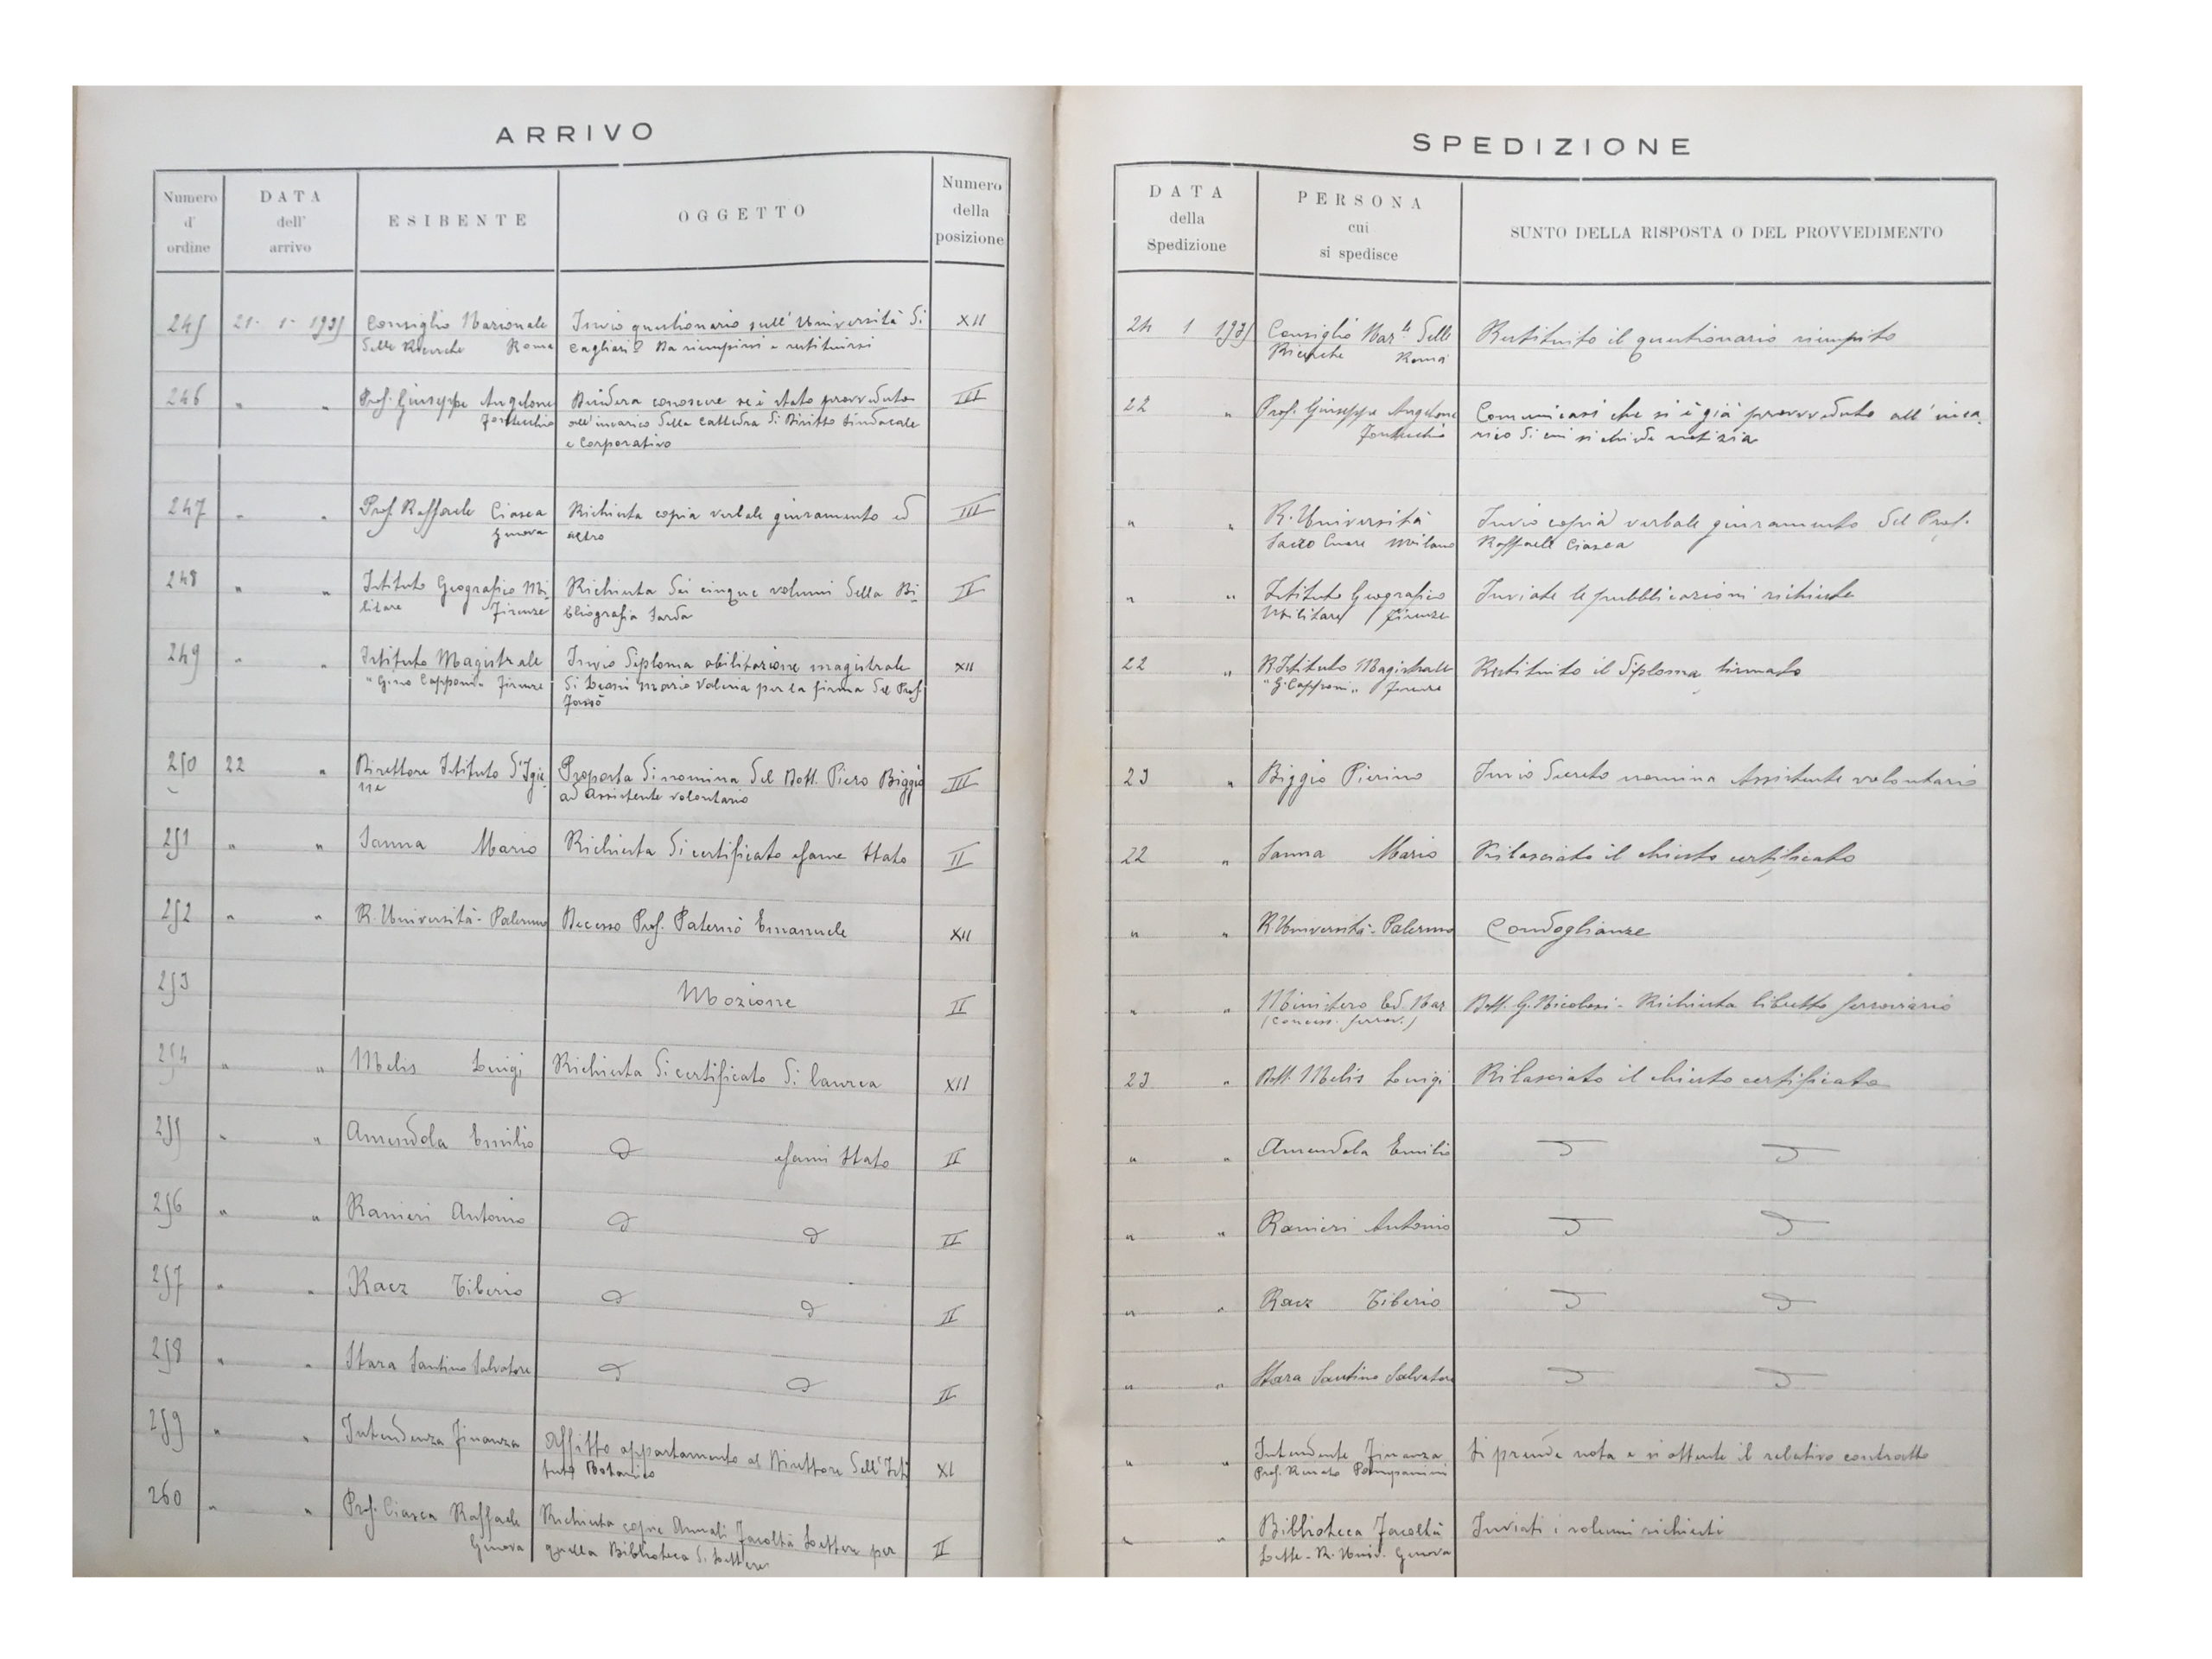 ARRIVO
Numero d' ordine | DATA dell' arrivo | ESIBENTE | OGGETTO | Numero della posizione
245 | 21- 1- 1935 | Consiglio Nazionale | Invio questionario sull'Università di | XII
delle Ricerche Roma | Cagliari Da riempirsi e restituirsi
246 | " " | Prof. Giuseppe Angelone | Desidera conoscere se è stato provveduto | III
Fontecchio | all'incarico della Cattedra di Diritto Sindacale
e Corporativo
247 | " " | Prof Raffaele Ciasca | Richiesta copia verbale giuramento ed | III
Genova | altro
248 | " " | Istituto Geografico Mi- | Richiesta dei cinque volumi della Bi- | II
litare Firenze | bliografia Sarda
249 | " " | Istituto Magistrale | Invio diploma abilitazione magistrale | XII
"Gino Capponi" Firenze | di Maria Valeria per la firma del Prof.
250 | 22 " | Direttore Istituto d'Igie- | Proposta di nomina del Dott. Piero Biggio | III
ne | ad Assistente volontario
251 | " " | Sanna Mario | Richiesta di certificato esame Stato | II
252 | " " | R. Università - Palermo | Decesso Prof. Paternò Emanuele | XII
253 | Mozione | II
254 | " " | Melis Luigi | Richiesta di certificato di laurea | XII
255 | " " | Amendola Emilio | d esami Stato | II
256 | " " | Ranieri Antonio | d d | II
257 | " " | Racz Tiberio | d d | II
258 | " " | Stara Santino Salvatore | d d | II
259 | " " | Intendenza Finanza | Affitto appartamento al Direttore dell'Isti | XI
tuto Botanico
260 | " " | Prof. Ciasca Raffaele | Richiesta copie Annali Facoltà Lettere per | II
Genova | quella Biblioteca di Lettere
SPEDIZIONE
DATA della Spedizione | PERSONA cui si spedisce | SUNTO DELLA RISPOSTA O DEL PROVVEDIMENTO
24 1 1935 | Consiglio Naz.le delle | Restituito il questionario riempito
Ricerche Roma
22 " | Prof. Giuseppe Angelone | Comunicasi che si è già provveduto all'inca-
Fontecchio | rico di cui si chiede notizia
" " | R. Università | Invio copia verbale giuramento del Prof.
Sacro Cuore Milano | Raffaele Ciasca
" " | Istituto Geografico | Inviate le pubblicazioni richieste
Militare Firenze
22 " | R. Istituto Magistrale | Restituito il diploma firmato
"G. Capponi" Firenze
23 " | Biggio Pierino | Invio decreto nomina Assistente volontario
22 " | Sanna Mario | Rilasciato il chiesto certificato
" " | R. Università - Palermo | Condoglianze
" " | Ministero Ed. Naz | Dott. G. Nicolosi - Richiesta libretto ferroviario
(Concess. ferrov.)
23 " | Dott. Melis Luigi | Rilasciato il chiesto certificato
" " | Amendola Emilio | d d
" " | Ranieri Antonio | d d
" " | Racz Tiberio | d d
" " | Stara Santino Salvatore | d d
" " | Intendente Finanza | Si prende nota e si attende il relativo contratto
Prof. Renato Pampanini
" " | Biblioteca Facoltà | Inviati i volumi richiesti
Lette - R. Univ. Genova